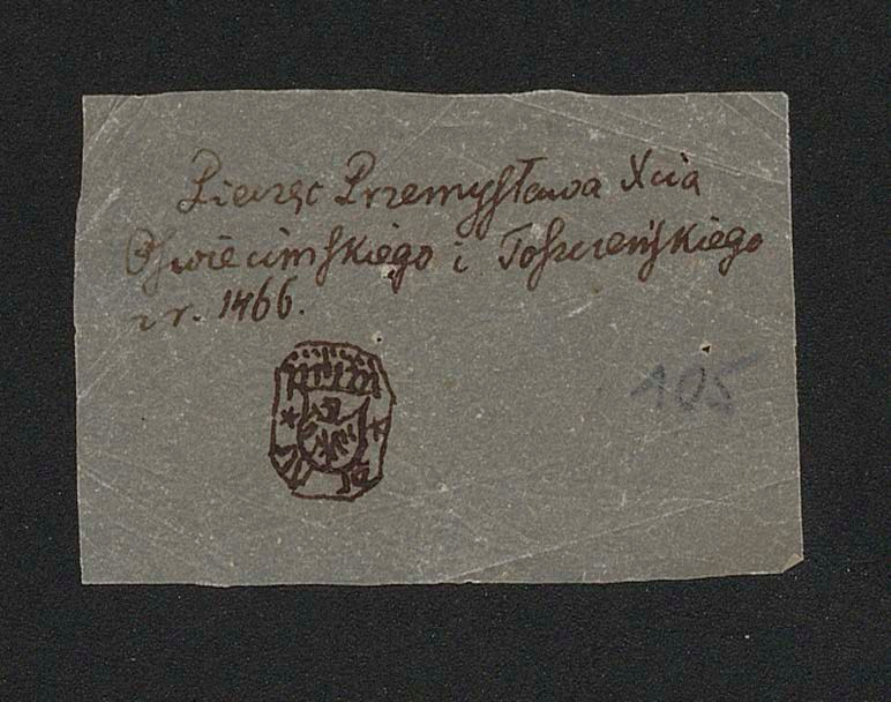 Pieczęc Przemysława Xcia
Oświecimskiego i Toszczeńskiego
z r. 1466.
105